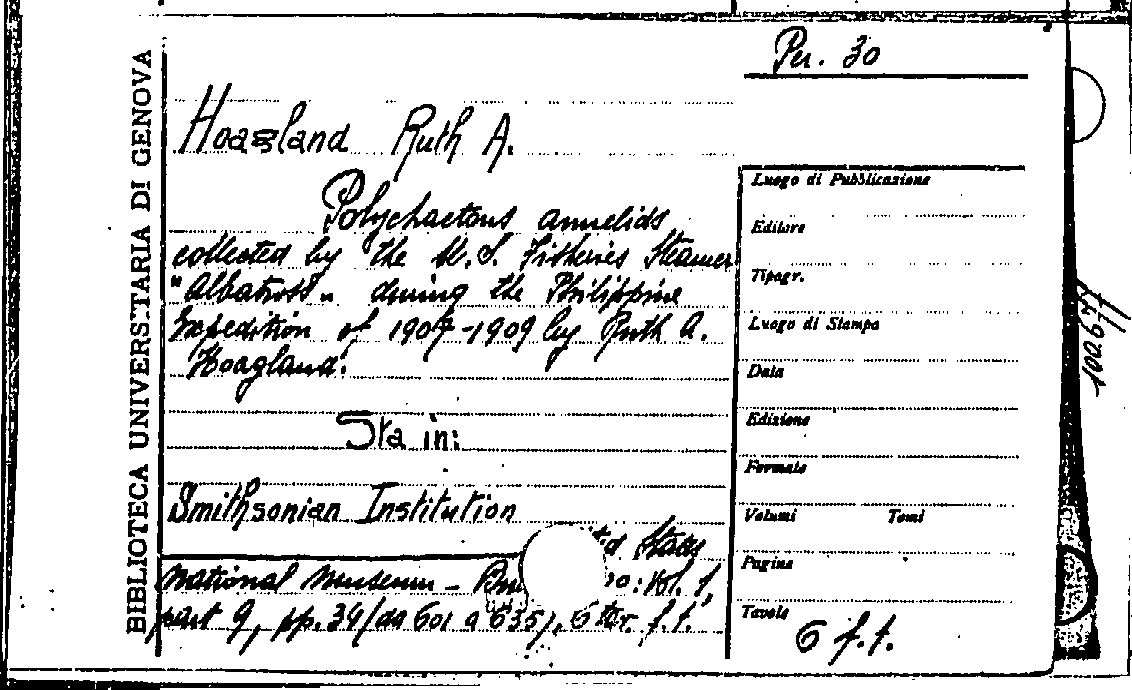 Per. 30
BIBLIOTECA UNIVERSITARIA DI GENOVA
Hoagland Ruth A.
Polychaetous annelids
collected by the U. S. Fisheries Steamer
"Albatross" during the Philippine
Expedition of 1907-1909 by Ruth A.
Hoagland.
Sta in:
Smithsonian Institution
States
National Museum -
: Vol. 1,
part 9, pp. 34 (da 601 a 635), 6 tav. f.t.
Luogo di Pubblicazione
Editore
Tipogr.
Luogo di Stampa
Data
Edizione
Formato
Volumi Tomi
Pagine
Tavole
6 f.t.